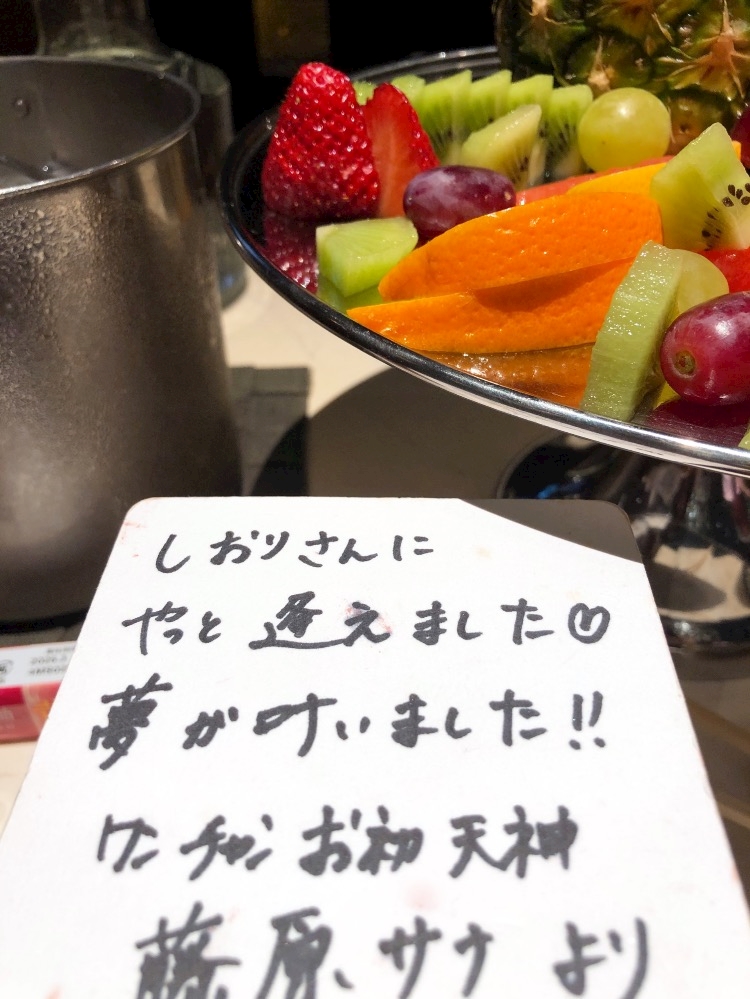 しおりさんに
やっと逢えました♡
夢が叶いました!!
ワンチャンお初天神
藤原、サナより